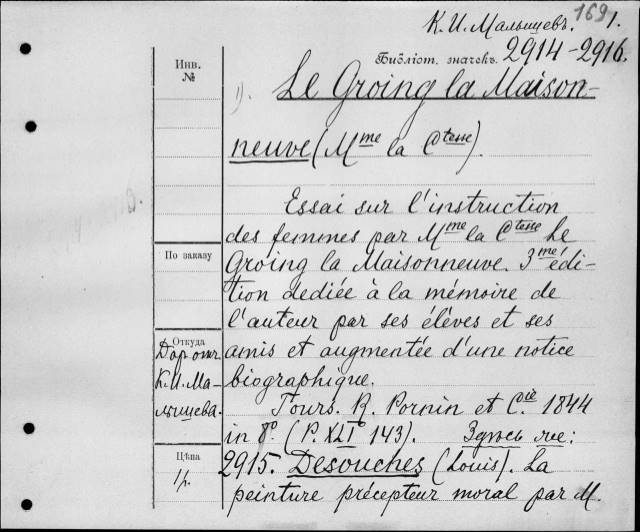 К. И. Малышевъ. 169 1.
Библіот. значекъ. 2914-2916.
Инв.
№
1). Le Groing la Maison-
neuve (Mme la Ctesse).
Essai sur l'instruction
des femmes par Mme la Ctesse Le
Groing la Maisonneuve. 3me édi-
tion dediée à la mémoire de
l'auteur par ses élèves et ses
amis et augmentée d'une notice
biographique.
Tours. R. Pornin et Cie 1844
in 8º. (P. XLI 143). Здѣсь же:
2915. Desouches (Louis). La
peinture précepteur moral par M.
По заказу
Откуда
Дар отъ
К. И. Ма-
лышева.
Цѣна